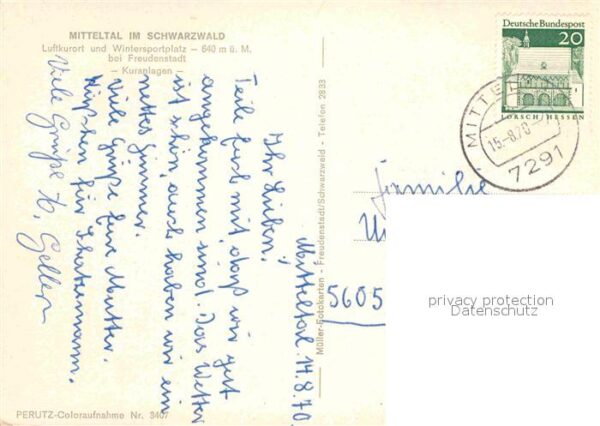 MITTELTAL IM SCHWARZWALD
Luftkurort und Wintersportplatz — 640 m ü. M.
bei Freudenstadt
— Kuranlagen —
Mitteltal 14.8.70
Ihr Lieben!
Teile Euch mit, daß wir gut
angekommen sind. Das Wetter
ist schön, auch haben wir ein
nettes Zimmer.
Viele Grüße Eure Mutter.
Küßchen für
Viele Grüße H.
PERUTZ-Coloraufnahme Nr. 3407
Müller-Fotokarten - Freudenstadt/Schwarzwald - Telefon 2933
Deutsche Bundespost
20
LORSCH/HESSEN
MITTEL
15.-8.70
7291
Familie
5605
privacy protection
Datenschutz